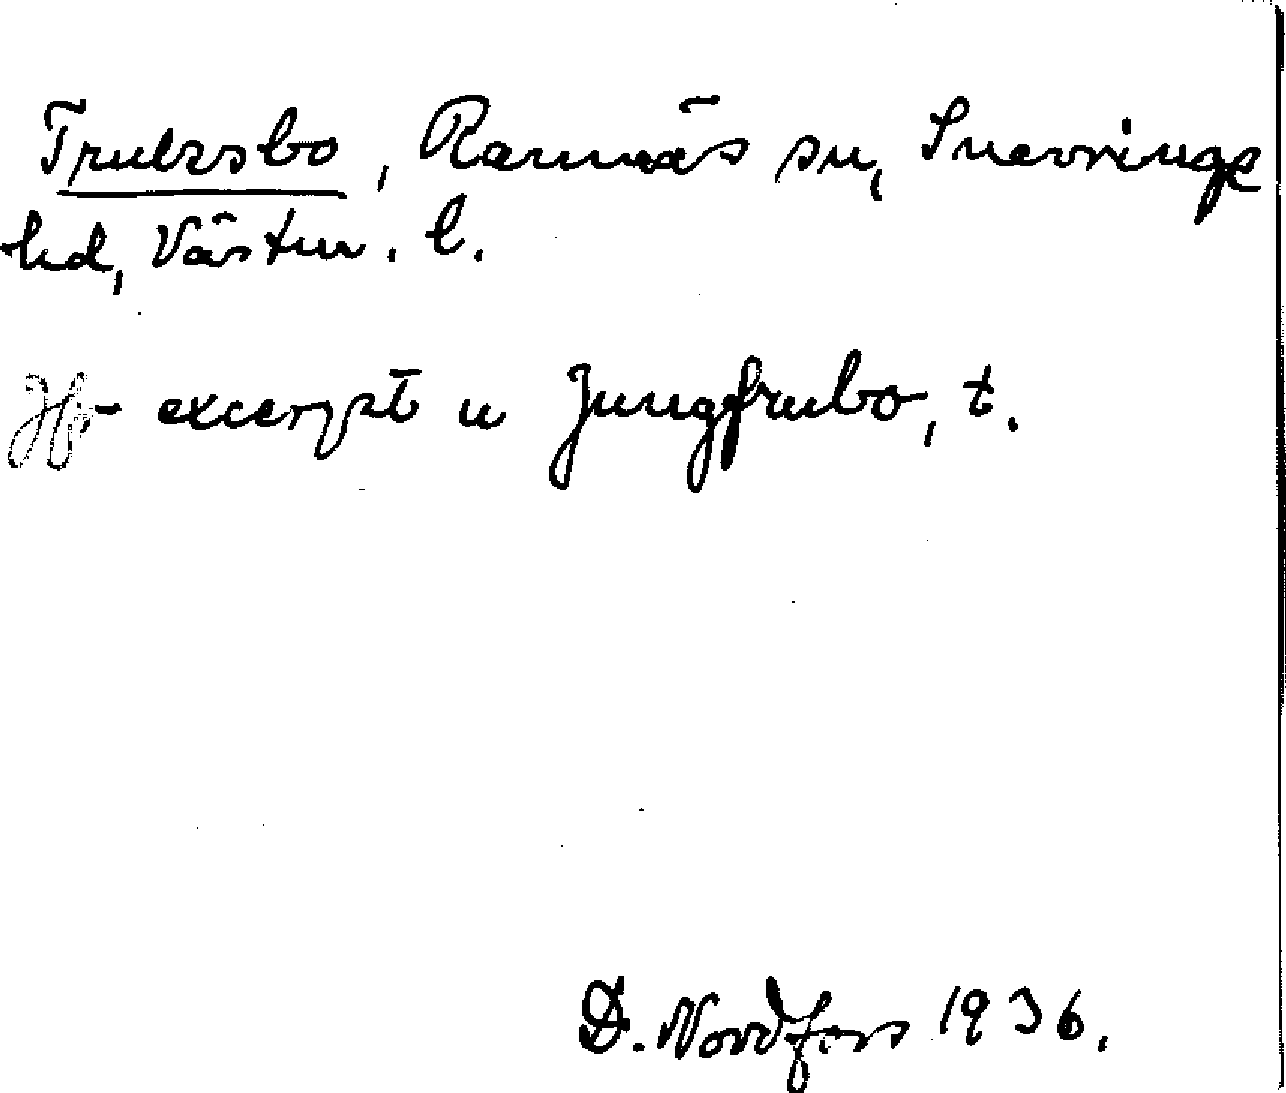 Trulsbo, Ramnäs sn, Snevringe
hd, Västm. l.
Jfr excerpt u Jungfrubo, t.
D. Nordfors 1936.